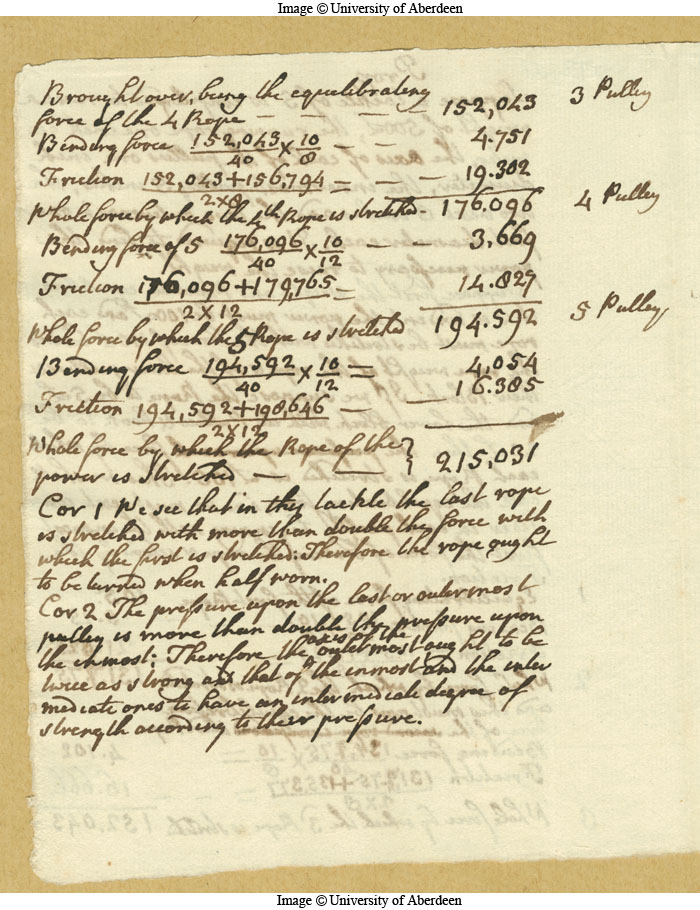 Image © University of Aberdeen
Brought over, being the equilibrating
force of the 4 Rope — — — — 152,043 3 Pulley
Bending force 152,043/40 × 10/8 — — 4.751
Friction 152,043+156,794/2×8 = — — 19.302
Whole force by which the 4th Rope is stretched - 176.096 4 Pulley
Bending force of 5 176,096/40 × 10/12 — — 3,669
Friction 176,096+179,765/2×12 = 14.827
Whole force by which the 5 Rope is stretched 194.592 5 Pulley
Bending force 194,592/40 × 10/12 = 4,054
Friction 194,592+198,646/2×12 — — 16.385
Whole force by which the Rope of the }
power is stretched — — } 215,031
Cor 1 We see that in this tackle the last rope
is stretched with more than double the force with
which the first is stretched: Therefore the rope ought
to be turned when half worn.
Cor 2 The pressure upon the last or outermost
pulley is more than double the pressure upon
the inmost: Therefore the axis of the outermost ought to be
twice as strong as that of the inmost and the inter
mediate ones to have an intermediate degree of
strength according to their pressure.
Image © University of Aberdeen